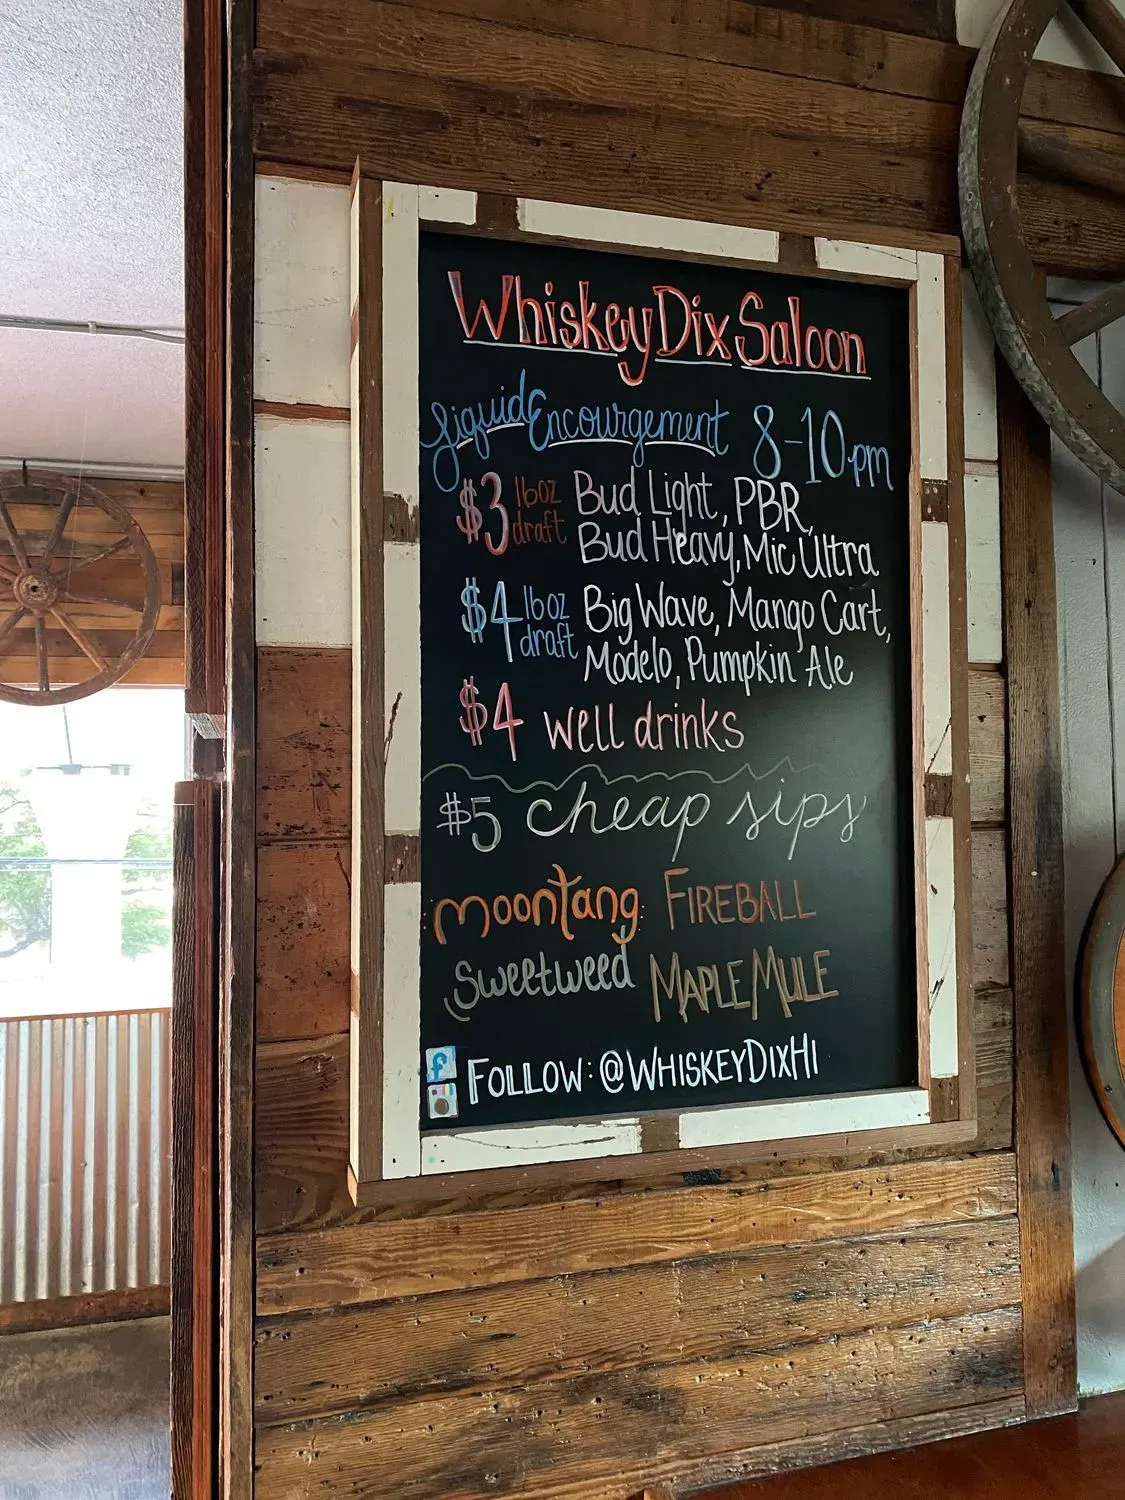 Whiskey Dix Saloon
Liquid Encourgement 8-10pm
$3 16oz draft Bud Light, PBR,
Bud Heavy, Mic Ultra
$4 16oz draft Big Wave, Mango Cart,
Modelo, Pumpkin Ale
$4 well drinks
$5 cheap sips
moontang FIREBALL
Sweetweed MAPLE MULE
f FOLLOW: @WHISKEYDIXHI